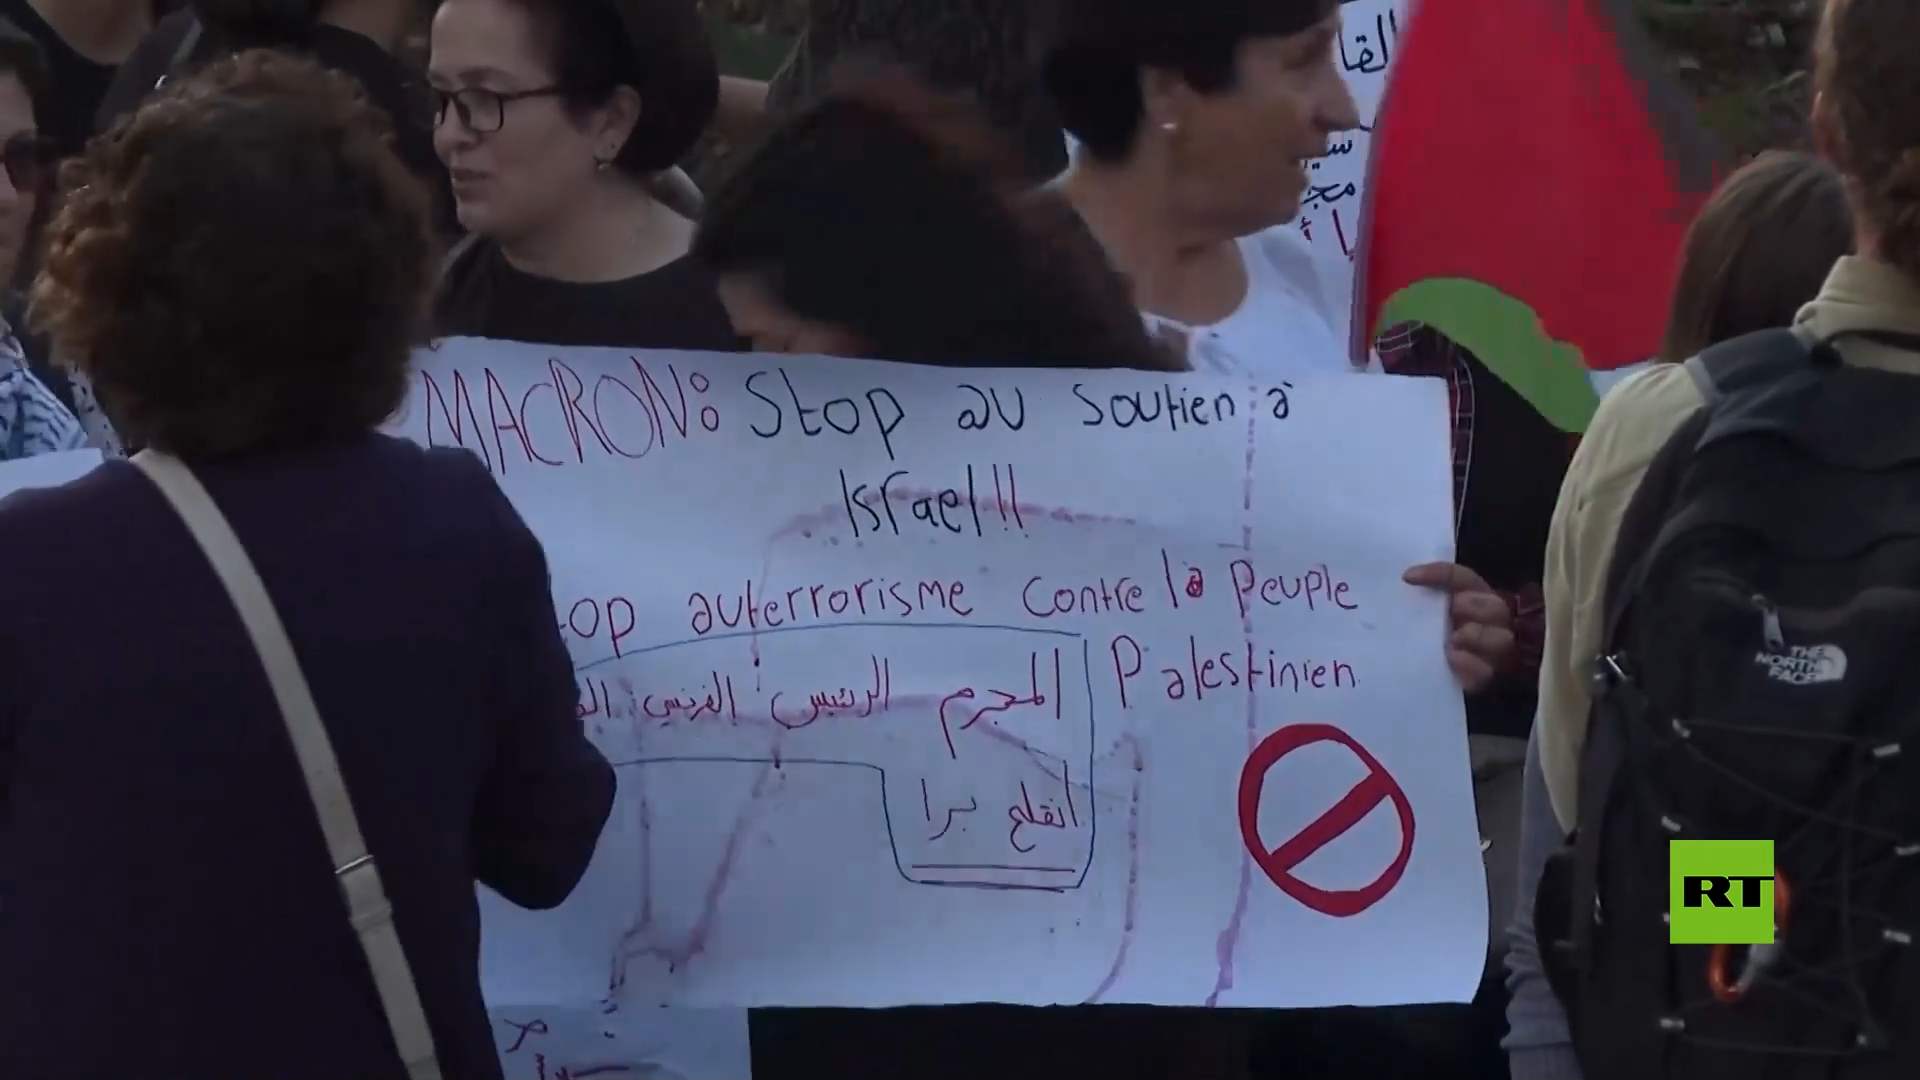 القا
MACRON: Stop au soutien à
Israel!!
auterrorisme contre la peuple
Palestinien
المجرم الرئيس الفرنسي
انقلع برا
THE
NORTH
FACE
RT